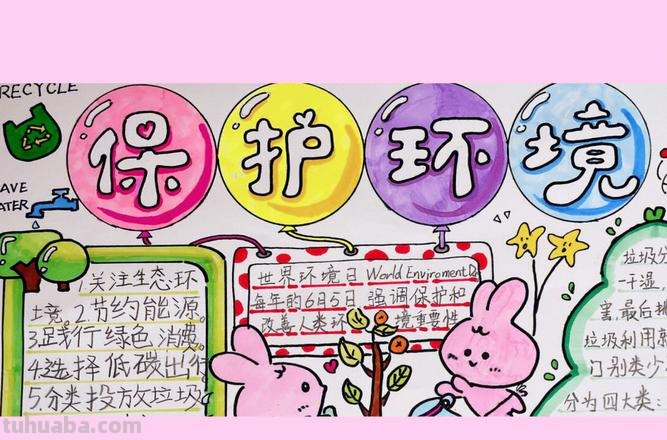 RECYCLE
保护环境
WATER
1.关注生态环
境。2.节约能源。
3.践行绿色消费。
4.选择低碳出行。
5.分类投放垃圾
世界环境日 World Enviroment
每年的6月5日 强调保护和
改善人类环境重要性
垃圾分
干湿,
害,最
垃圾利用
门别类少
分为四大类:
tuhuaba.com